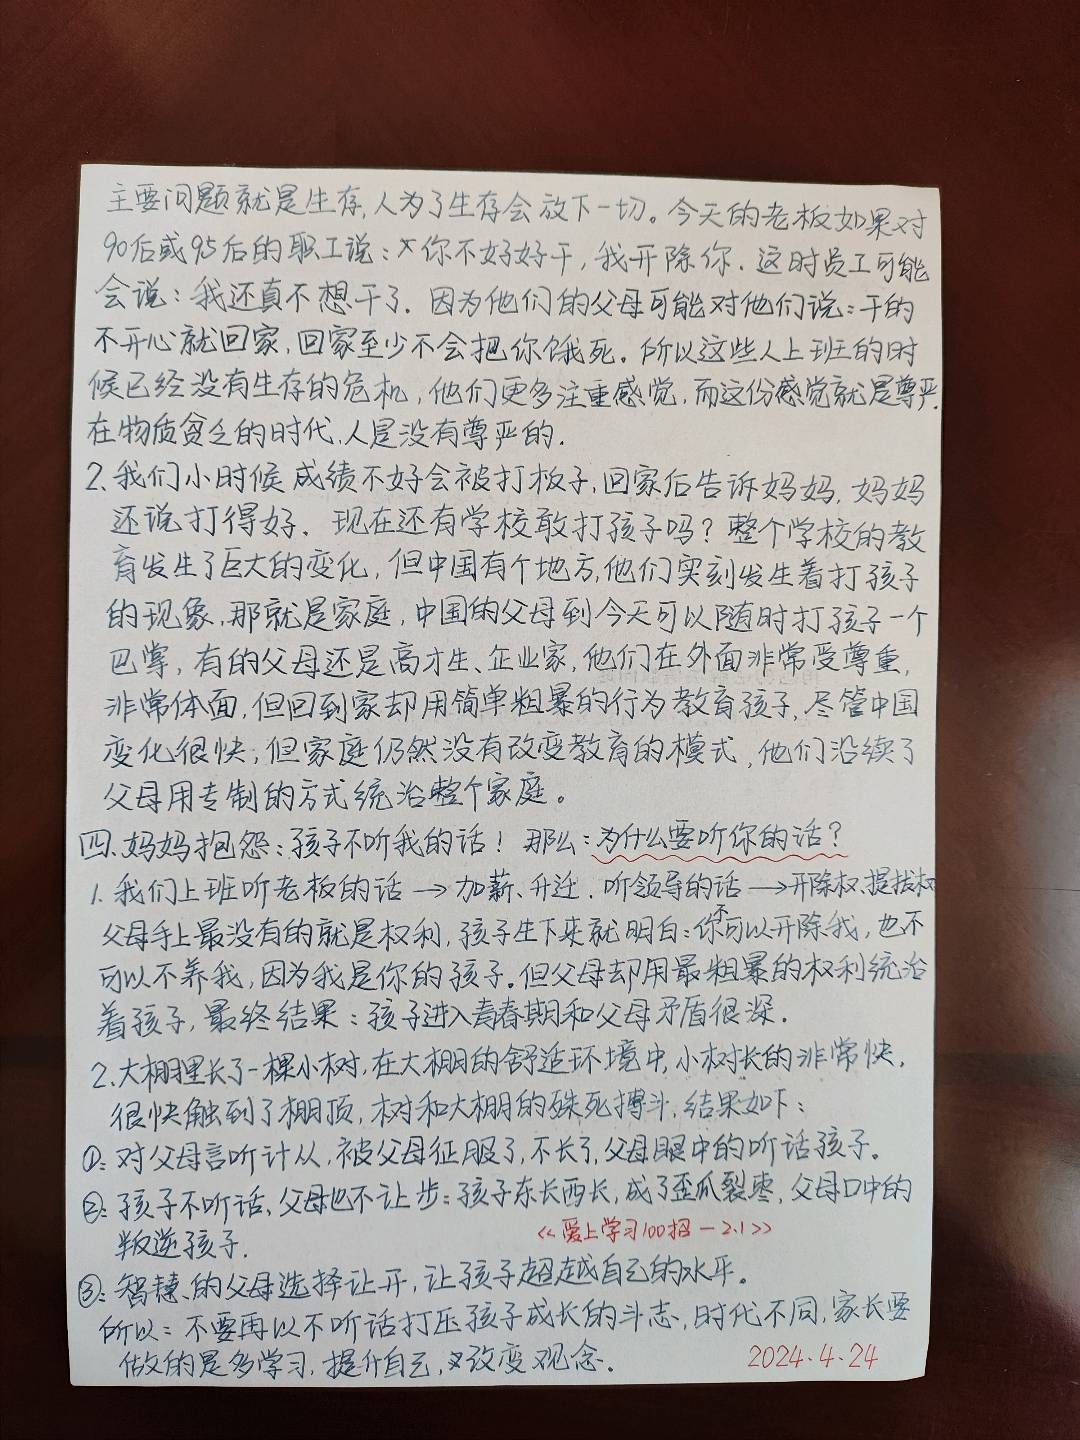 主要问题就是生存,人为了生存会放下一切。今天的老板如果对
90后或95后的职工说:你不好好干,我开除你.这时员工可能
会说:我还真不想干了.因为他们的父母可能对他们说:干的
不开心就回家,回家至少不会把你饿死.所以这些人上班的时
候已经没有生存的危机,他们更多注重感觉,而这份感觉就是尊严.
在物质贫乏的时代,人是没有尊严的.
2.我们小时候成绩不好会被打板子,回家后告诉妈妈,妈妈
还说打得好.现在还有学校敢打孩子吗?整个学校的教
育发生了巨大的变化,但中国有个地方,他们实刻发生着打孩子
的现象,那就是家庭,中国的父母到今天可以随时打孩子一个
巴掌,有的父母还是高才生、企业家,他们在外面非常受尊重,
非常体面,但回到家却用简单粗暴的行为教育孩子,尽管中国
变化很快,但家庭仍然没有改变教育的模式,他们沿续了
父母用专制的方式统治整个家庭。
四.妈妈抱怨:孩子不听我的话!那么:为什么要听你的话?
1.我们上班听老板的话→加薪、升迁.听领导的话→开除权、提拔权
父母手上最没有的就是权利,孩子生下来就明白:你不可以开除我,也不
可以不养我,因为我是你的孩子.但父母却用最粗暴的权利统治
着孩子,最终结果:孩子进入青春期和父母矛盾很深.
2.大棚里长了一棵小树,在大棚的舒适环境中,小树长的非常快,
很快触到了棚顶,树和大棚的殊死搏斗,结果如下:
①:对父母言听计从,被父母征服了,不长了,父母眼中的听话孩子.
②:孩子不听话、父母也不让步:孩子东长西长,成了歪瓜裂枣,父母口中的
叛逆孩子.
《爱上学习100招—2.1》
③:智慧的父母选择让开,让孩子超越自己的水平。
所以:不要再以不听话打压孩子成长的斗志,时代不同,家长要
做的是多学习,提升自己,改变观念.
2024.4.24